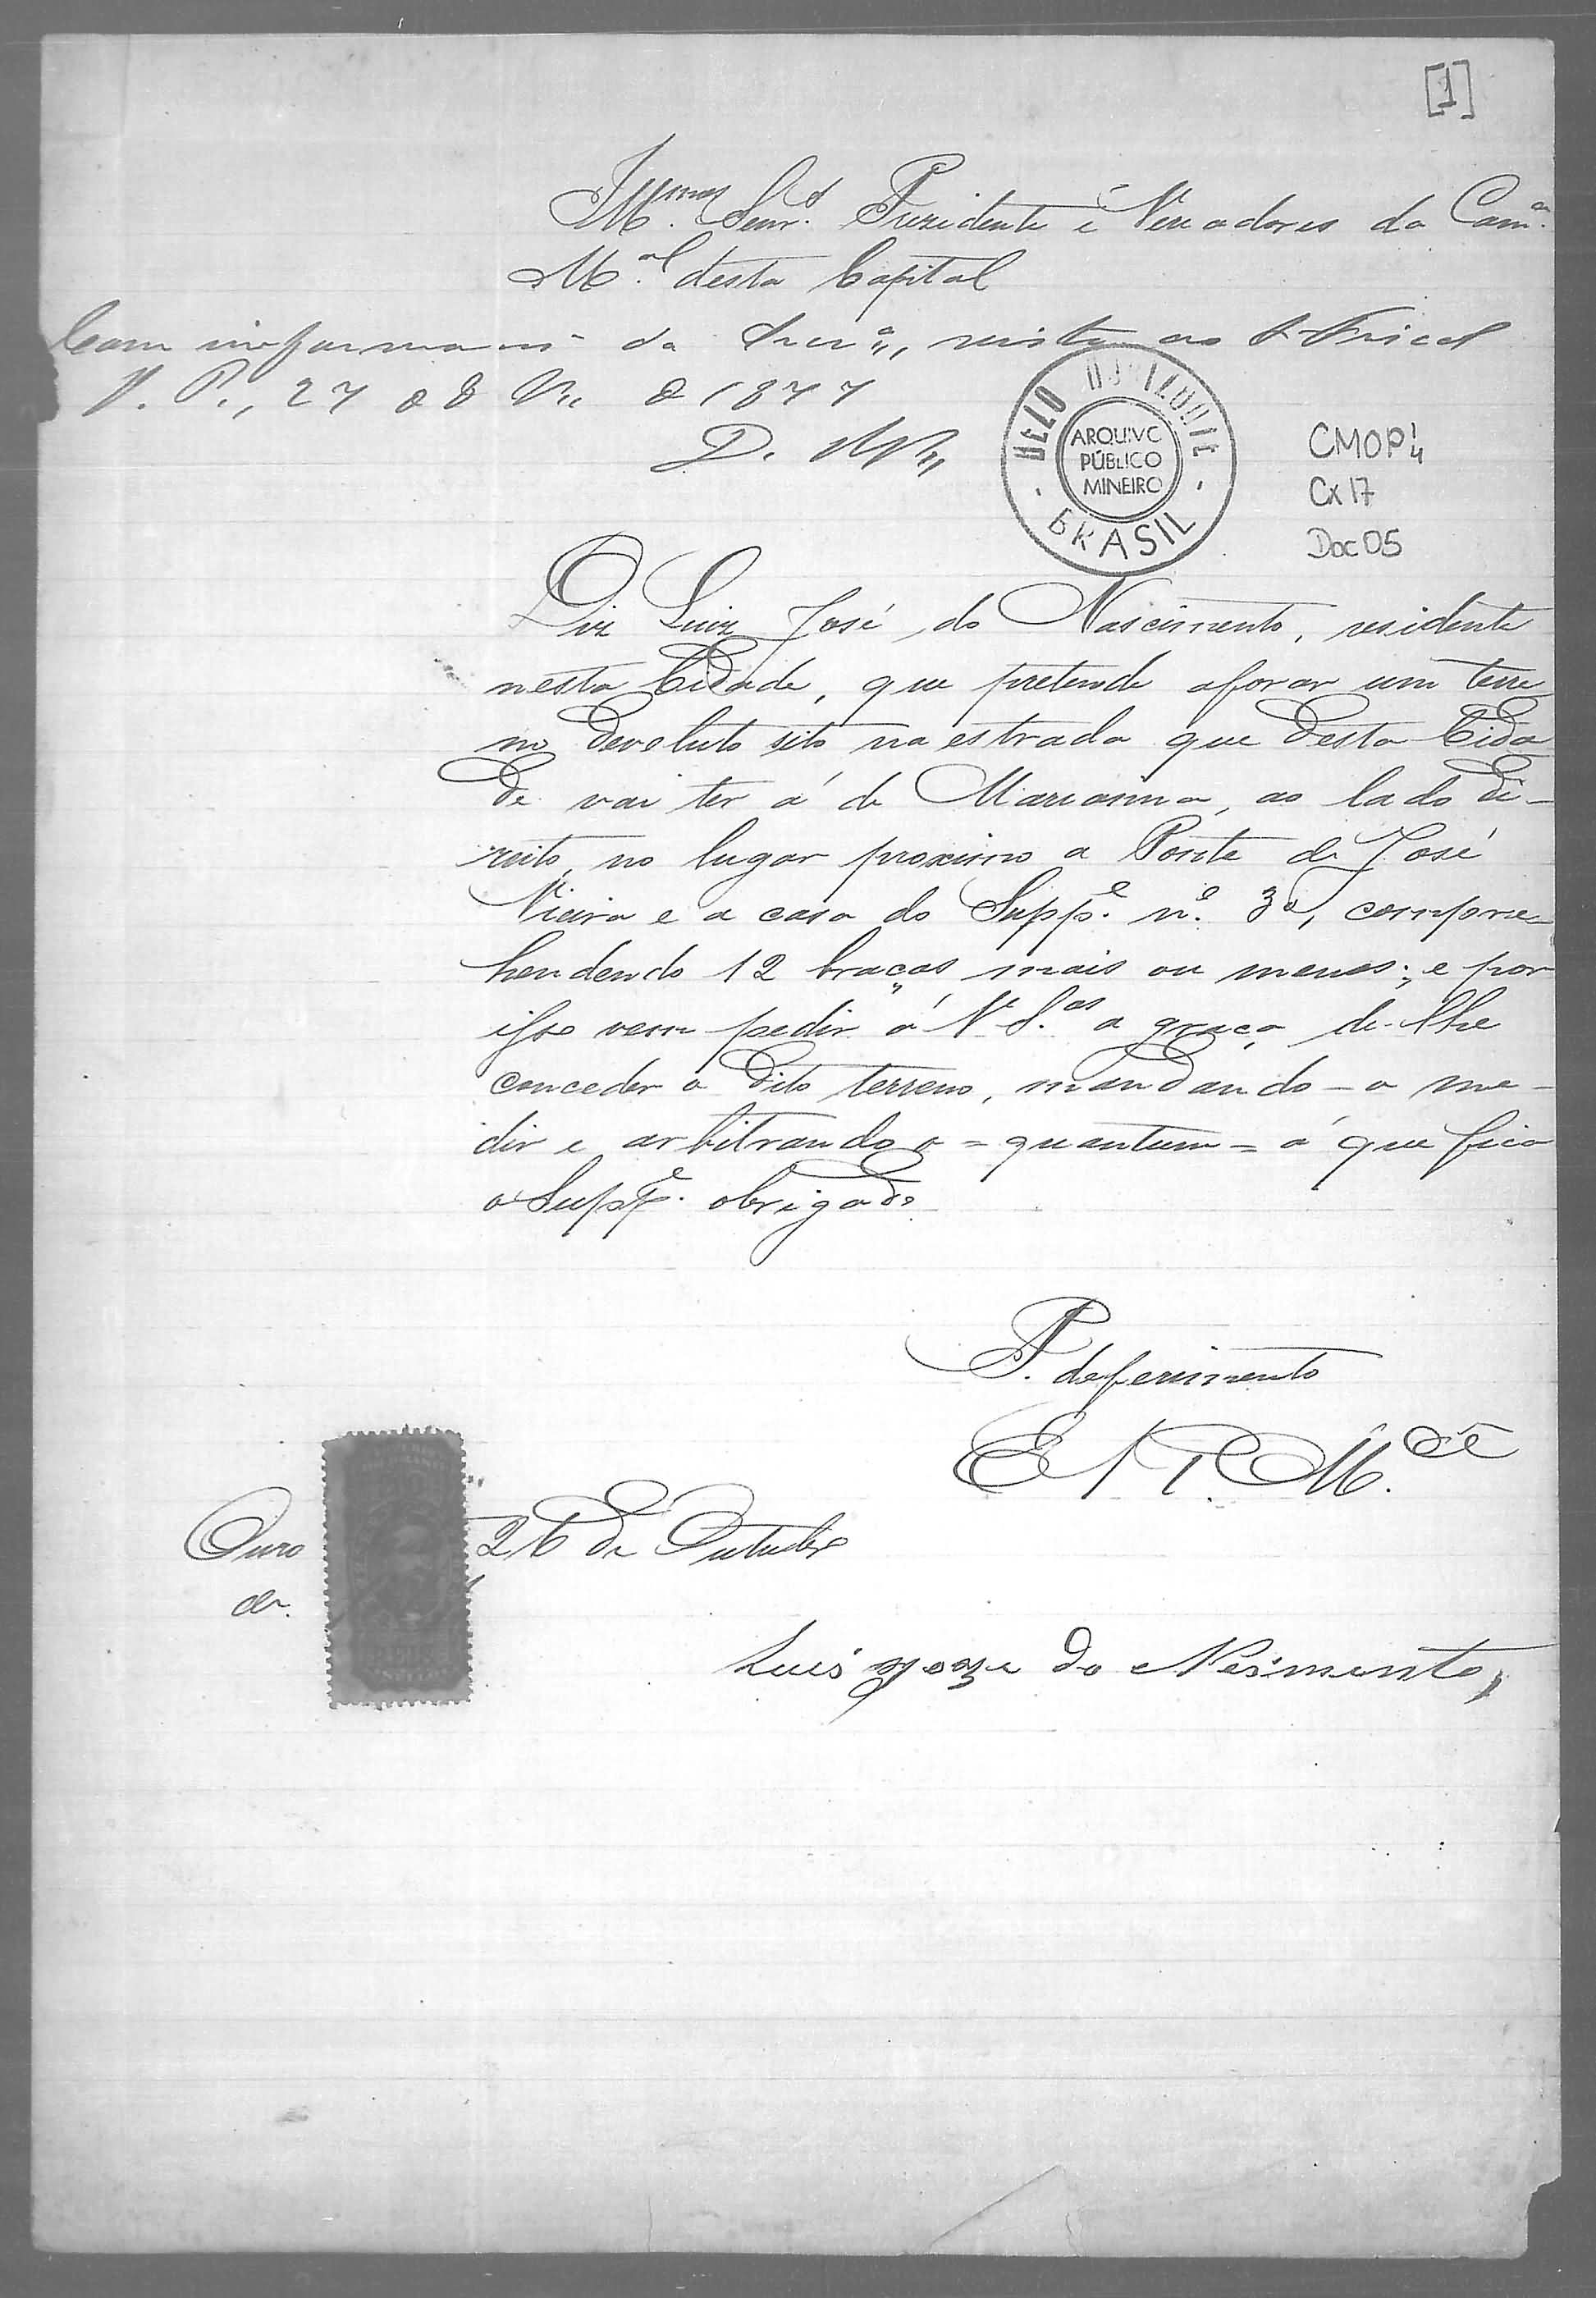 [1]
Illmos Senrs Prezidente e Vereadores da Camª
M.al desta Capital
Com informação da , vista ao Fiscal
O. P., 27 de 8bro de 1877
ARQUIVO
PÚBLICO
MINEIRO
BELO HORIZONTE
BRASIL
CMOP¹4
Cx 17
Doc 05
Diz Luiz José do Nascimento, residente
nesta Cidade, que pretende aforar um terre
no devoluto sito na estrada que desta Cida
de vai ter á de Marianna, ao lado di-
reito, no lugar proximo a Ponte de José
Vieira e a casa do Suppe. nº. 30, compre-
hendendo 12 braças mais ou menos; e por
isso vem pedir á V. S.as a graça de lhe
conceder o dito terreno, mandando-o me-
dir e arbitrando o = quantum = á que fica
o Suppe. obrigado.
P. deferimento
E. R. M.ce
Ouro 26 de Outubro
de
Luis Joze do Nasimento